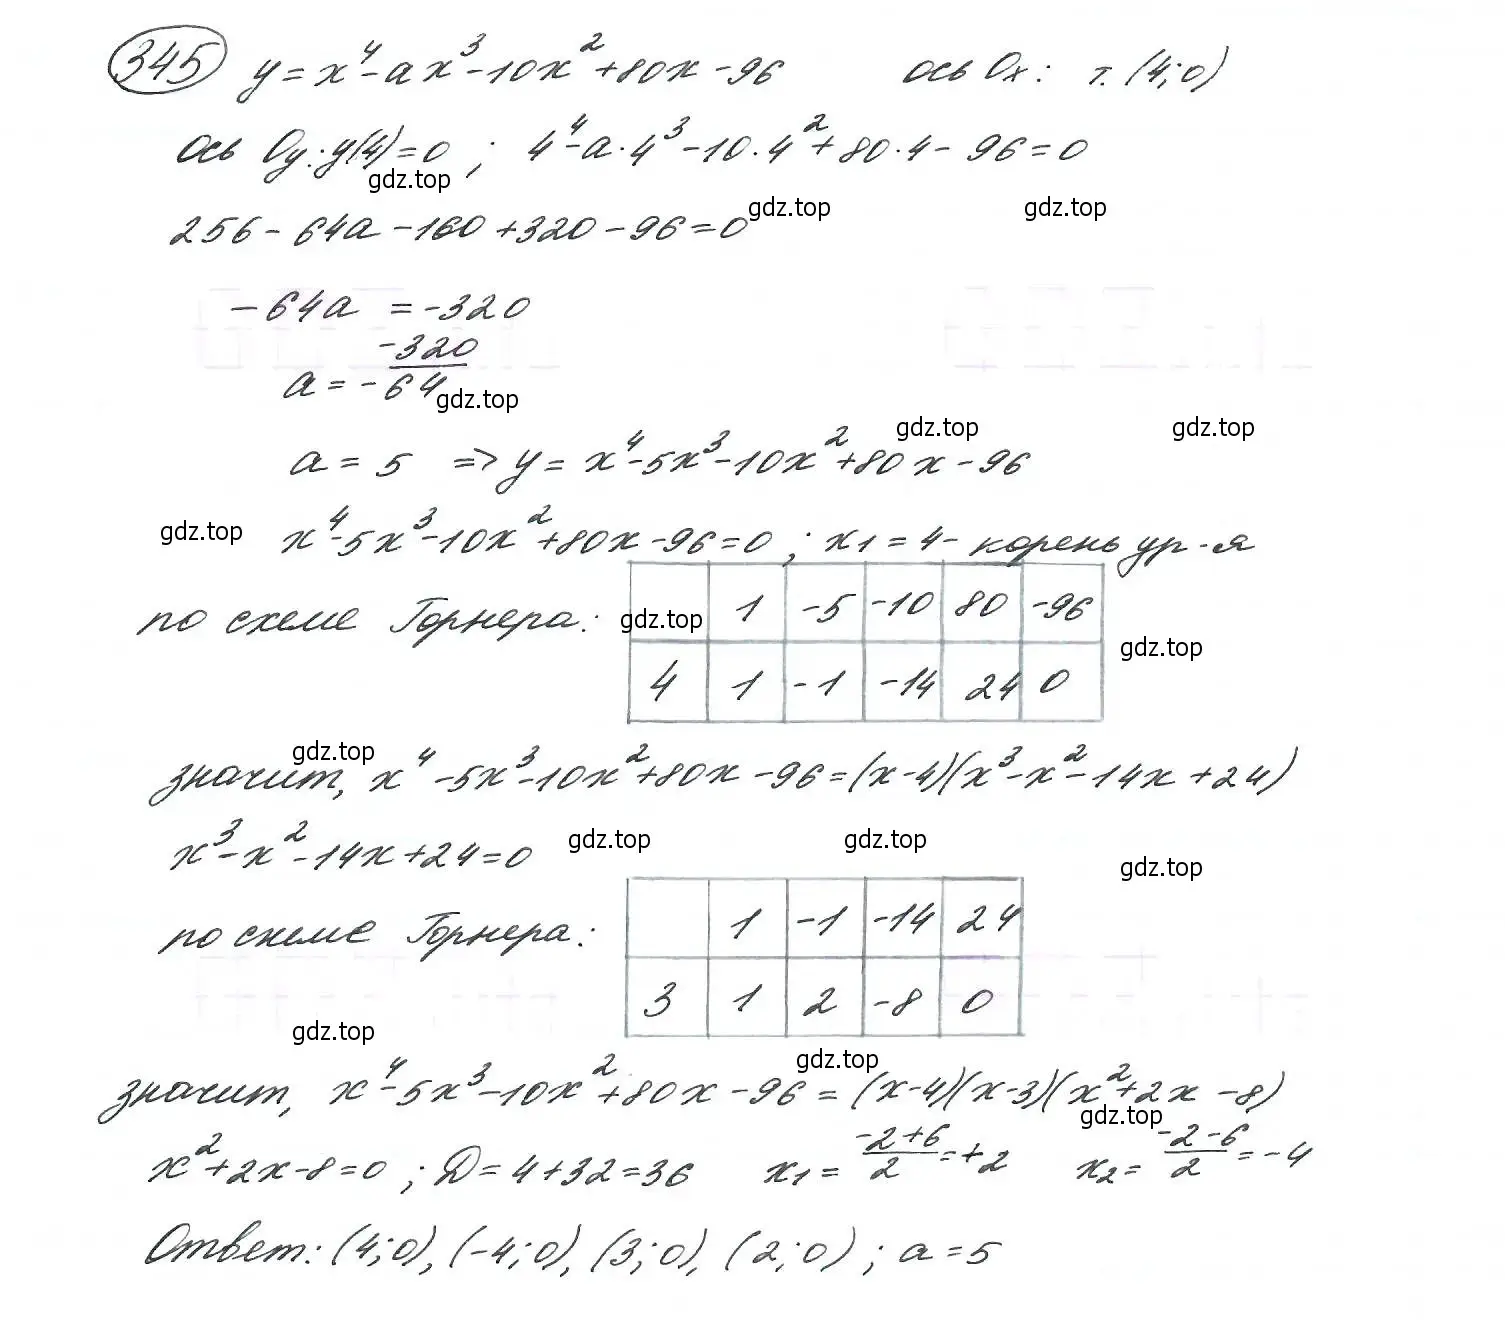 345 y=x⁴-ax³-10x²+80x-96 ось Ox: т. (4;0)
ось Oy: y(4)=0 ; 4⁴-a·4³-10·4²+80·4-96=0
gdz.top
256-64a-160+320-96=0 gdz.top gdz.top
-64a = -320
-320
a = -64
gdz.top
gdz.top gdz.top
a = 5 => y= x⁴-5x³-10x²+80x-96
gdz.top x⁴-5x³-10x²+80x-96=0 ; x1=4- корень ур-я
по схеме Горнера: gdz.top 1 -5 -10 80 -96
gdz.top
4 1 -1 -14 24 0
gdz.top
значит, x⁴-5x³-10x²+80x-96=(x-4)(x³-x²-14x+24)
x³-x²-14x+24=0 gdz.top gdz.top
gdz.top
по схеме Горнера: 1 -1 -14 24
3 1 2 -8 0
gdz.top
gdz.top
значит, x⁴-5x³-10x²+80x-96=(x-4)(x-3)(x²+2x-8)
gdz.top
x²+2x-8=0 ; Д=4+32=36 x1= -2+6/2=+2 x2= -2-6/2=-4
Ответ: (4;0), (-4;0), (3;0), (2;0) ; a=5